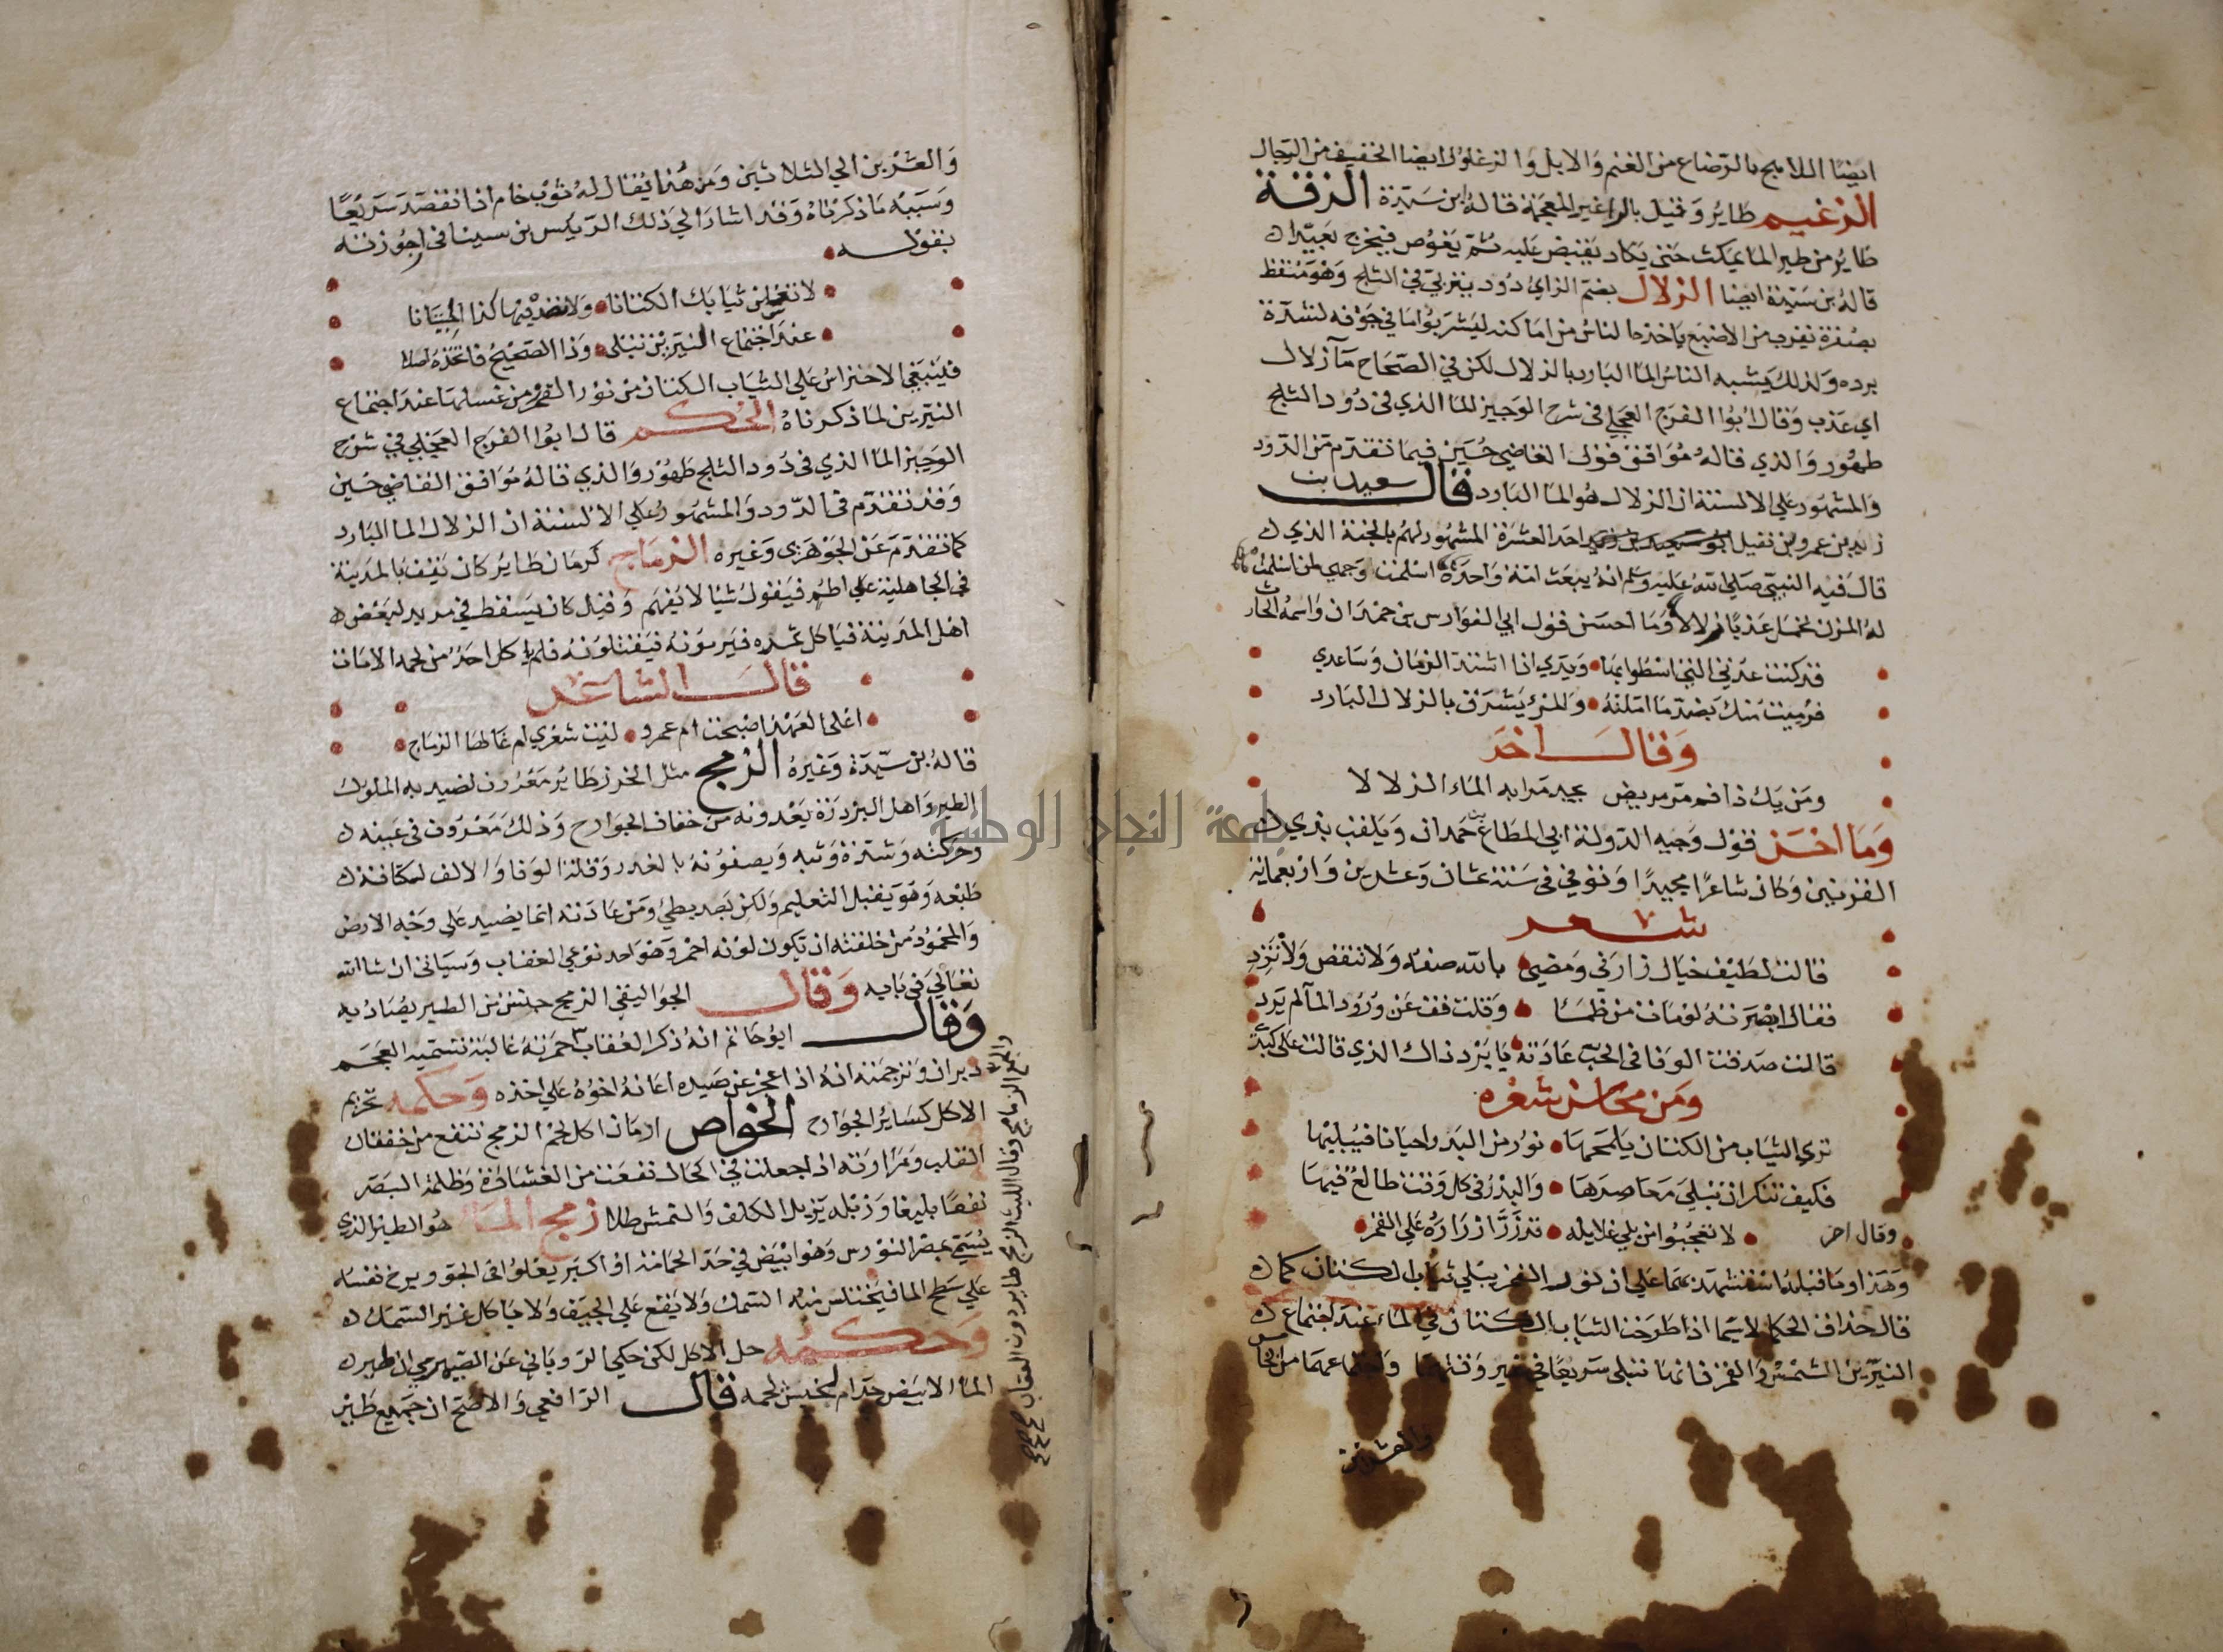 ايضا اللامج بالرضاع من الغنم والابل والزغلول ايضا الخفيف من الرجال
الزغيم طاير وقيل بالرا غير المعجمة قاله ابن سيدة الزقة
طاير من طير الما يمكث حتى يكاد يقبض عليه ثم يغوص فيخرج بعيدا
قاله بن سيدة ايضا الزلال بضم الزاي دود يتربي في الثلج وهو منقط
بصفرة يقرب من الاصبع ياخذه الناس من اماكنه ليشربوا ما في جوفه لشدة
برده ولذلك يشبه الناس الما البارد بالزلال لكن في الصحاح مآ زلال
اي عذب وقال ابوا الفرج العجلي في شرح الوجيز الما الذي في دود الثلج
طهور والذي قاله موافق قول القاضي حسين فيما تقدم من الدود
والمشهور علي الالسنة ان الزلال هو الما البارد قال سعيد ابن
زيد بن عمرو بن نفيل احد العشرة المشهور لهم بالجنة الذي
قال فيه النبي صلي الله عليه وسلم انه يبعث امة واحدة اسلمت وجهي لمن اسلمت
له المزن تحمل عذبا زلالا وما احسن قول ابي الفوارس بن حمدان واسمه الحارث
قد كنت عدتي التي اسطوا بها ويدي اذا اشتد الزمان وساعدي
فرميت منك بضد ما املته والمرء يشرق بالزلال البارد
وقال اخر
ومن يك ذا فم مر مريض يجد مرا به الماء الزلالا
وما احسن قول وجيه الدولة ابي المطاع بن حمدان ويلقب بذي
القرنين وكان شاعرا مجيدا وتوفي في سنة ثمان وعشرين واربعماية
شعر
قالت لطيف خيال زارني ومضى بالله صفه ولا تنقص ولا تزد
فقال ابصرته لو مات من ظما وقلت قف عن ورود الما لم يرد
قالت صدقت الوفا في الحب عادته يا برد ذاك الذي قالت على كبدي
ومن محاسن شعره
تري الثياب من الكتان يلمحها نور من البدر احيانا فيبليها
فكيف تنكر ان تبلى معاصرها والبدر في كل وقت طالع فيها
وقال اخر لا تعجبوا من بلي غلايله قد زر ازراره علي القمر
وهذا وما قبله استشهد بهما علي ان نور القمر يبلي ثياب الكتان كما
قال حذاق الحكما لا سيما اذا طرحت الثياب الكتان في الماء عند اجتماع
النيرين الشمس والقمر فانها تبلى سريعا في غير وقتها واجتماعهما من الخامس
والعشرين
والعشرين الي الثلاثين ومن هنا يقال له ثوب خام اذا تقصد سريعا
وسببه ما ذكرناه وقد اشار الي ذلك الرييس بن سينا في ارجوزته
بقوله
لا تغسلن ثيابك الكتانا ولا تصد فيها كذا الحيتانا
عند اجتماع النيرين تبلى وذا الصحيح فاتخذه اصلا
فينبغي الاحتراس علي الثياب الكتان من نور القمر ومن غسلها عند اجتماع
النيرين لما ذكرناه الحكم قال ابوا الفرج العجلي في شرح
الوجيز الما الذي في دود الثلج طهور والذي قاله موافق القاضي حسين
وقد تقدم في الدود والمشهور علي الالسنة ان الزلال الما البارد
كما تقدم عن الجوهري وغيره الزماج كرمان طاير كان يقف بالمدينة
في الجاهلية علي اطم فيقول شيا لا يفهم وقيل كان يسقط في مربد لبعض
اهل المدينة فياكل ثمره فيرمونه فيقتلونه فلم ياكل احد من لحمه الا مات
قال الشاعر
اعلى العهد اصبحت ام عمرو ليت شعري ام غالها الزماج
قاله بن سيدة وغيره الزمج مثل الخرز طاير معروف تصيد به الملوك
الطير واهل البزدرة يعدونه من خفاف الجوارح وذلك معروف في عينه
وحركته وشدة وثبه ويصفونه بالغدر وقلة الوفا والالف لكثافة
طبعه وهو يقبل التعليم ولكن بعد بطئ ومن عادته انه يصيد علي وجه الارض
والمحمود من خلقته ان تكون لونه احمر وهو احد نوعي العقاب وسياتي ان شا الله
تعالي في بابه وقال الجواليقي الزمج جنس من الطير يصاد به
وقال ابو حاتم انه ذكر العقاب احمرته غالبة تسميه العجم
دبران وترجمته انه اذا عجز عن صيده اعانه اخوه علي اخذه وحكمه تحريم
الاكل كساير الجوارح الخواص ادمان اكل لحم الزمج تنفع من خفقان
القلب ومرارته اذا جعلت في اكحال نفعت من الغشاوة وظلمة البصر
نفعا بليغا وزبله يزيل الكلف والنمش طلا زمج الماء هو الطير الذي
يسمي بمصر النورس وهو ابيض في حد الحمامة او اكبر يعلوا في الجو ويزخ نفسه
علي سطح الما فيختلس منه السمك ولا يقع علي الجيف ولا ياكل غير السمك
وحكمه حل الاكل لكن حكي الروياني عن الصيمري ان طير
الما الابيض حرام لخبث لحمه قال الرافعي والاصح ان جميع طير
والجمع الزمامج وقال الليث الزمج طاير دون العقاب
جامعة النجاح الوطنية